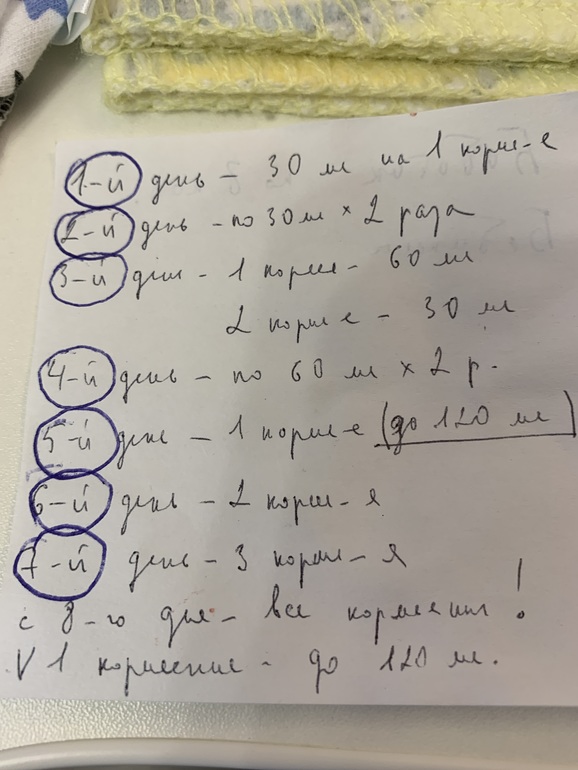 1-й день - 30 мл на 1 корм-е
2-й день - по 30 мл × 2 раза
3-й день - 1 корм-е - 60 мл
2 корм-е - 30 мл
4-й день - по 60 мл × 2 р.
5-й день - 1 корм-е (до 120 мл)
6-й день - 2 корм-я
7-й день - 3 корм-я
с 8-го дня - все кормления!
V 1 кормление - до 120 мл.